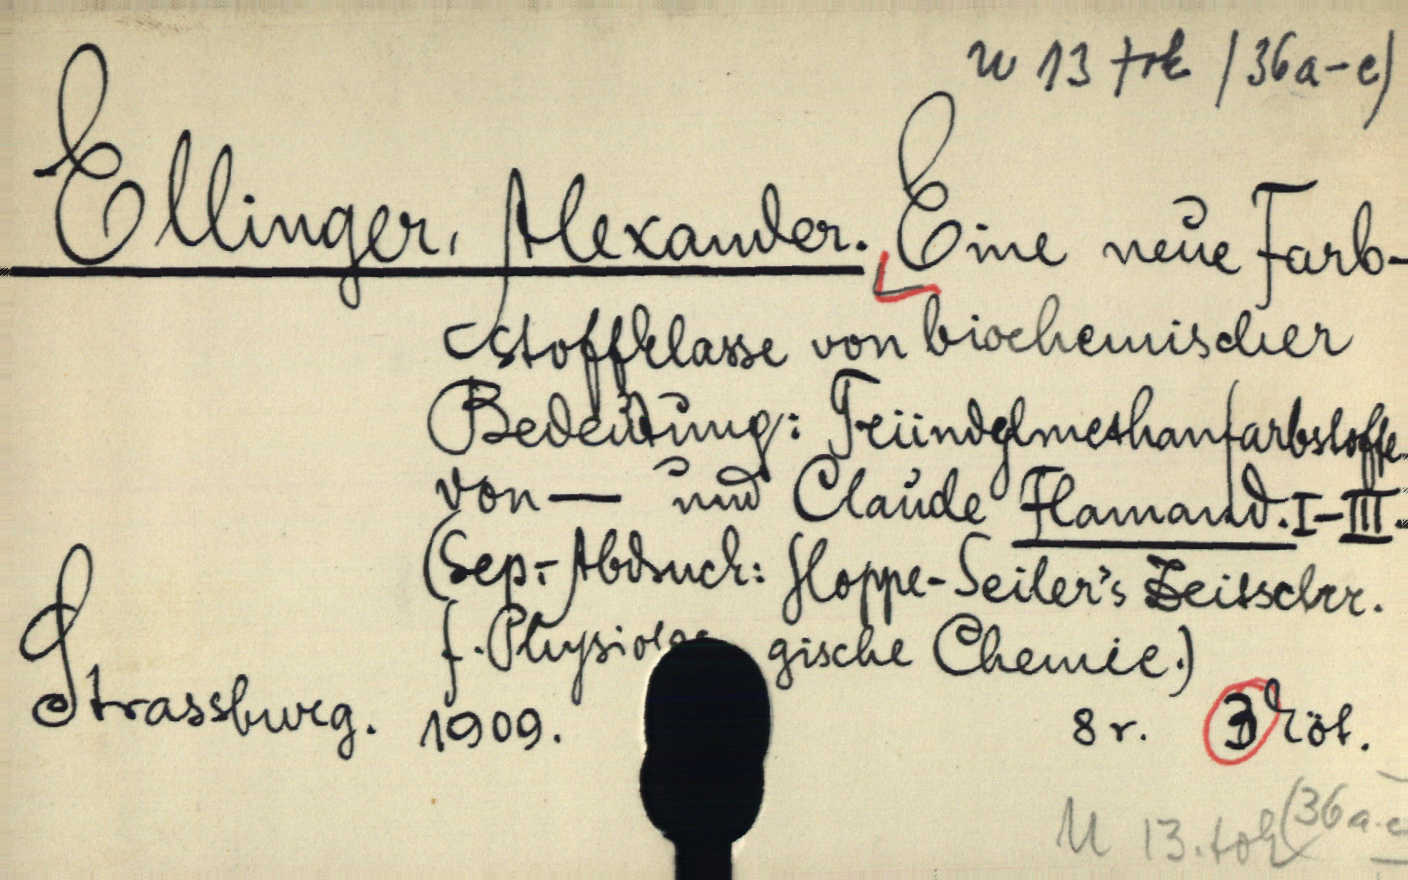 U 13 tok /36a-e)
Ellinger, Alexander. Eine neue Farb-
stoffklasse von biochemischer
Bedeutung: Triindylmethanfarbstoffe
von — und Claude Flamand. I-III.
(Sep.-Abdruck: Hoppe-Seiler's Zeitschr.
f. Physiologische Chemie.)
Strassburg. 1909. 8r. 3 köt.
U 13. tok (36a-e